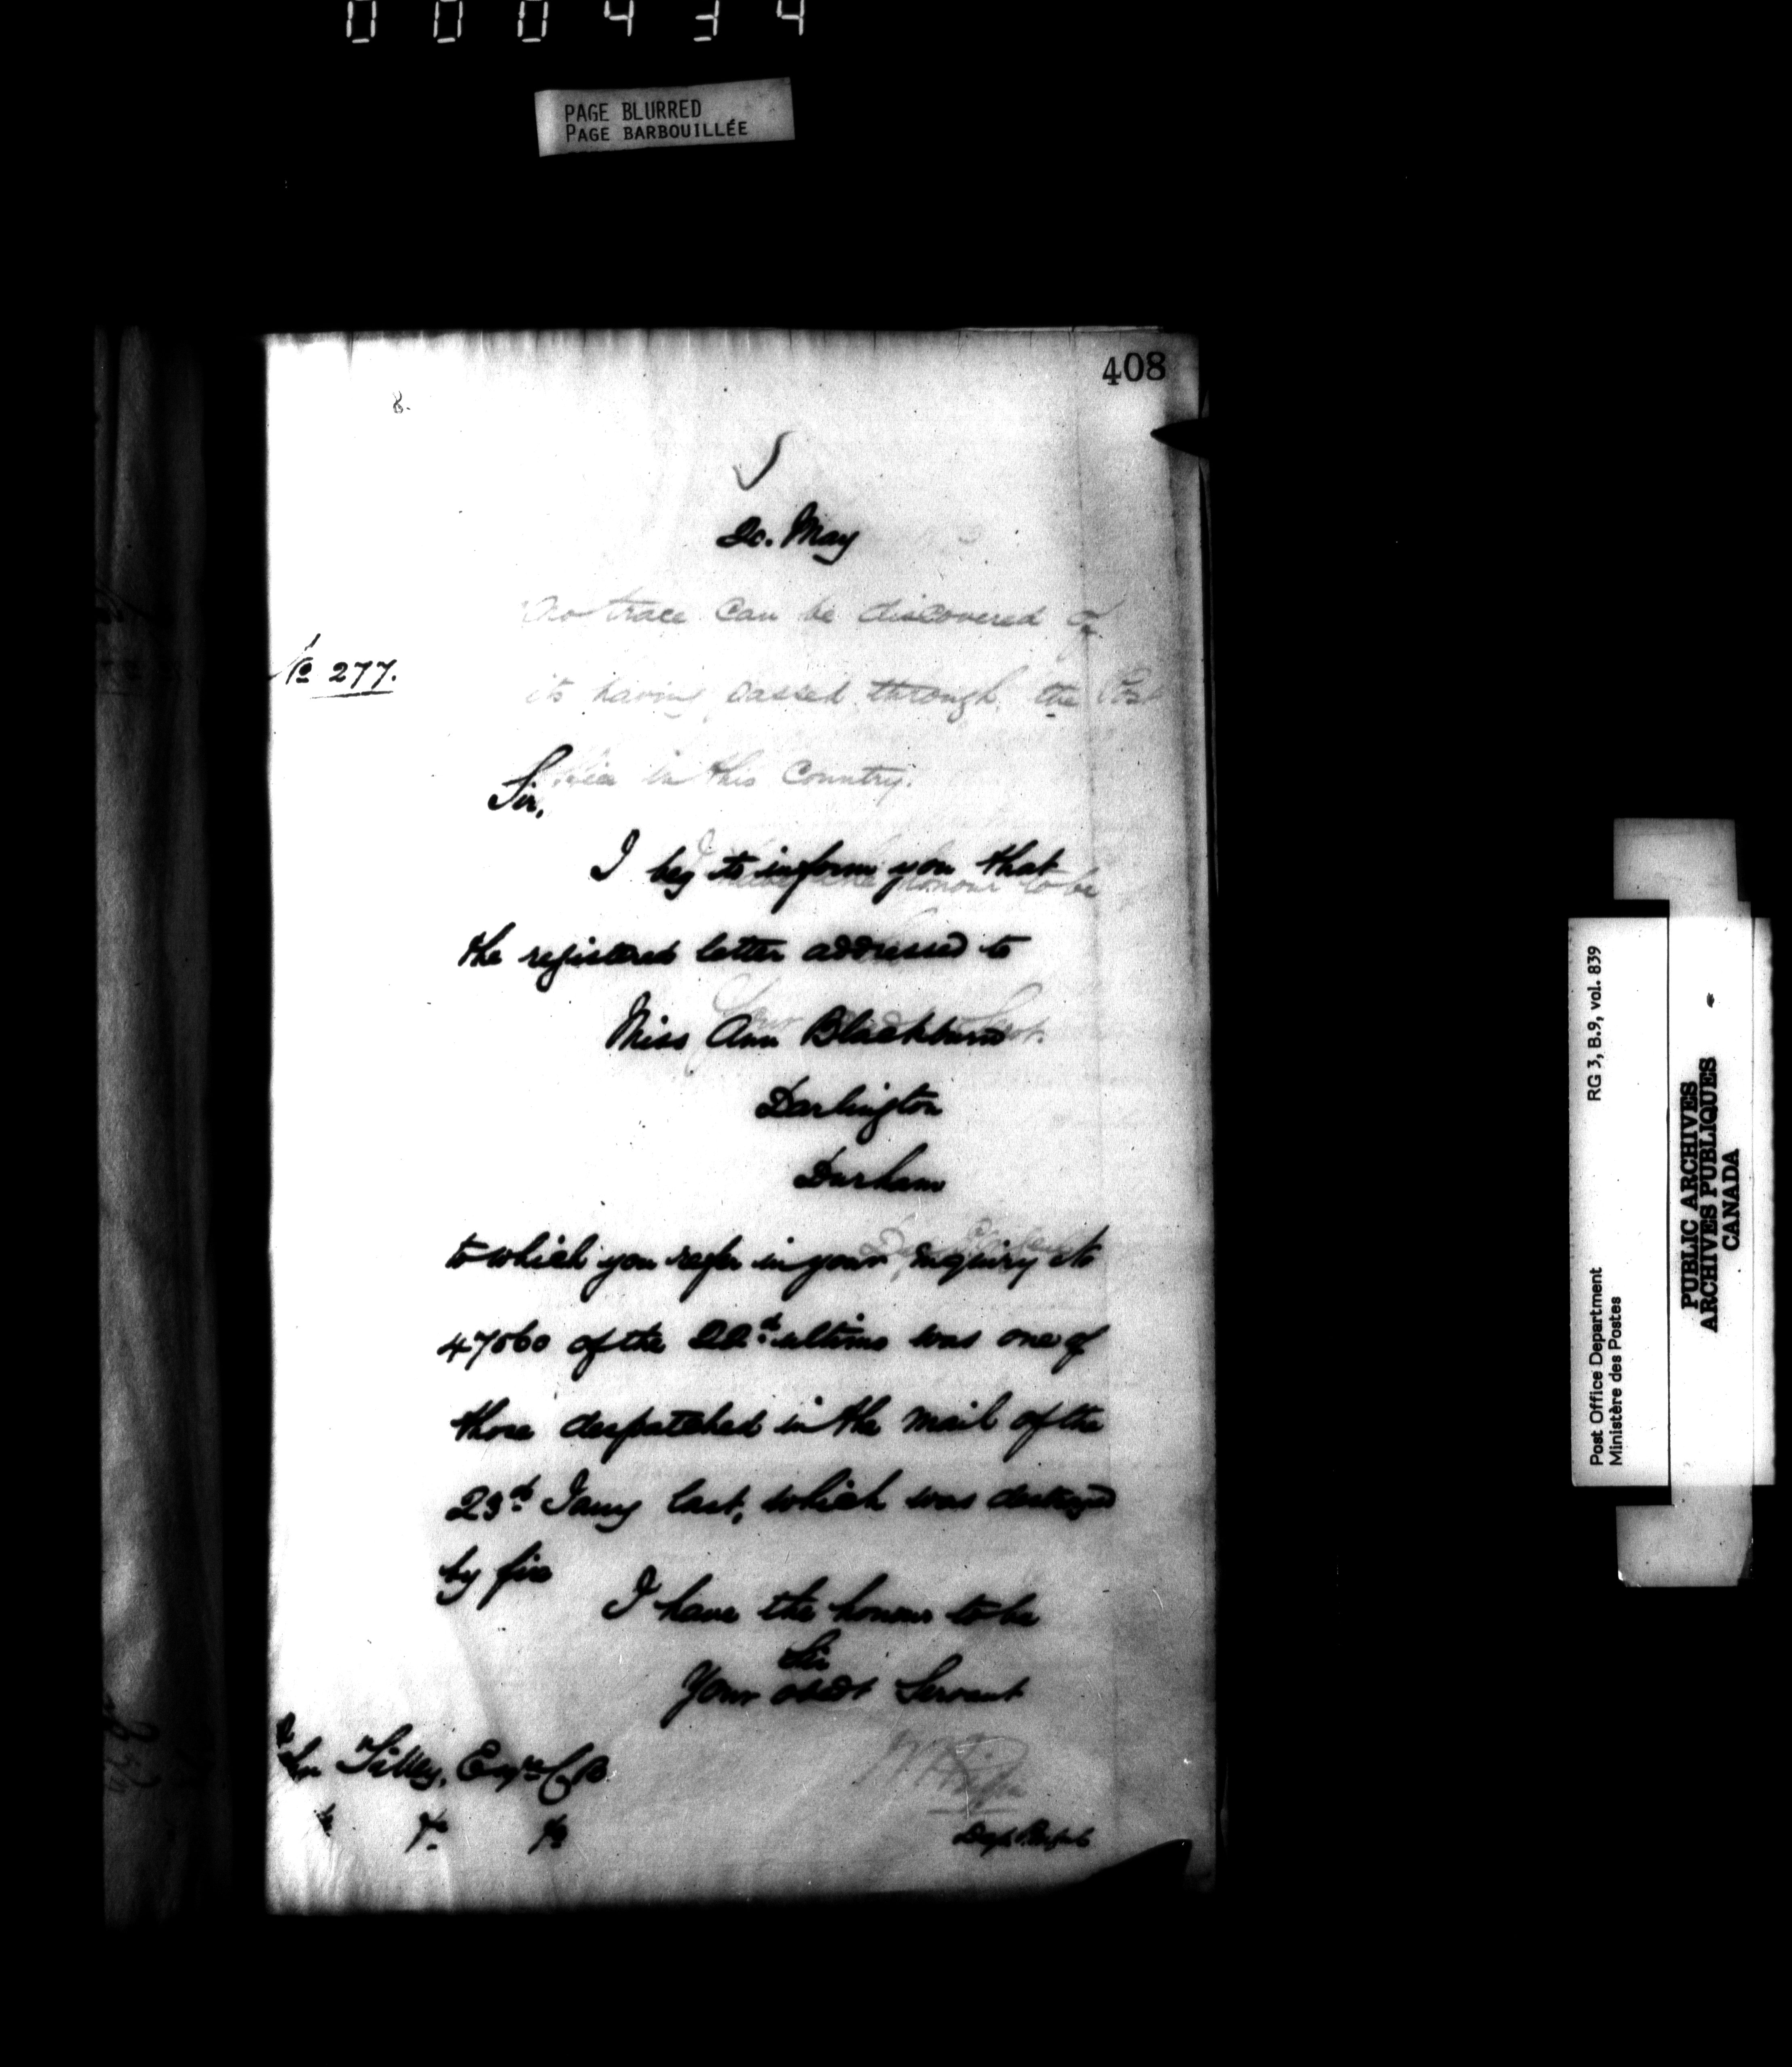 000434
PAGE BLURRED
PAGE BARBOUILLÉE
408
8.
20. May
No trace can be discovered of
its having passed through the Post
No 277.
in this Country.
Sir,
I beg to inform you that
honour to be
the registered letter addressed to
Your
Miss Ann Blackburn
Darlington
Durham
to which you refer in your Enquiry No
47060 of the 22d ultimo was one of
those despatched in the mail of the
23d Jany last, which was destroyed
by fire
I have the honour to be
Sir
Your obedt Servant
John Tilley, Esqre C.B.
&c &c &c
Post Office Department
Ministère des Postes
RG 3, B.9, vol. 839
PUBLIC ARCHIVES
ARCHIVES PUBLIQUES
CANADA